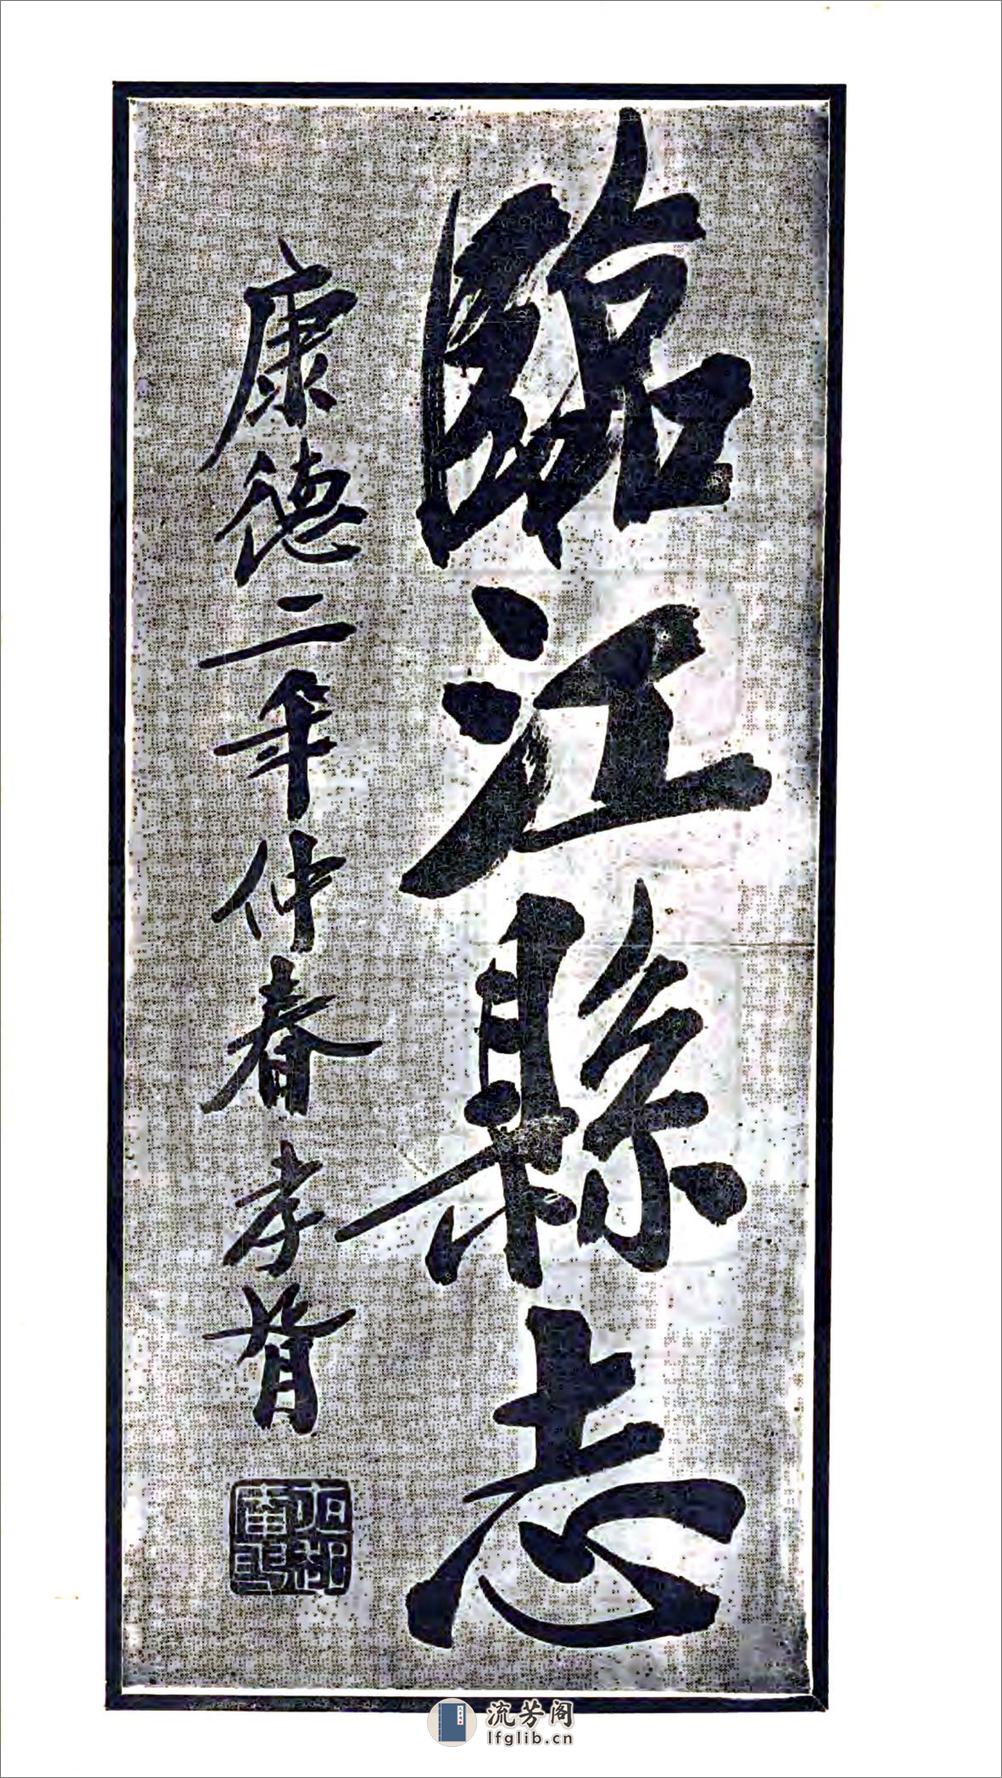 臨江縣志
康德二年仲春孝胥
流芳阁
lfglib.cn